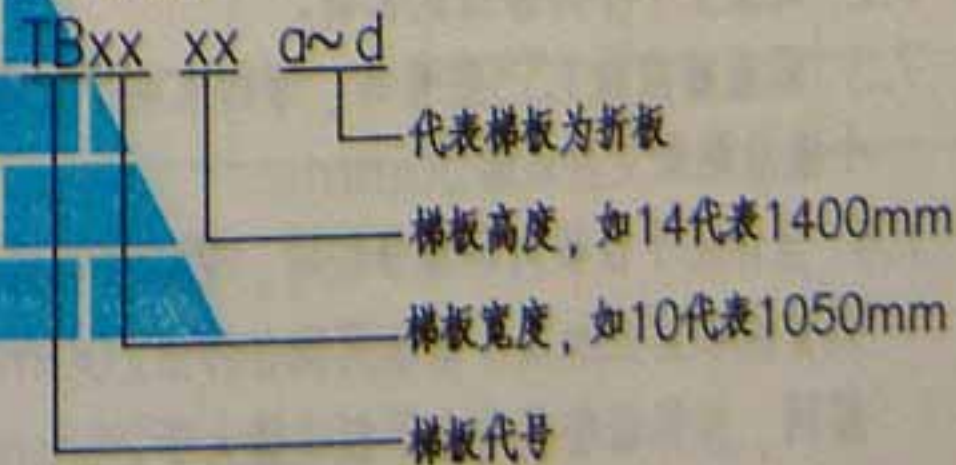 TBxx xx a~d
代表梯板为折板
梯板高度，如14代表1400mm
梯板宽度，如10代表1050mm
梯板代号